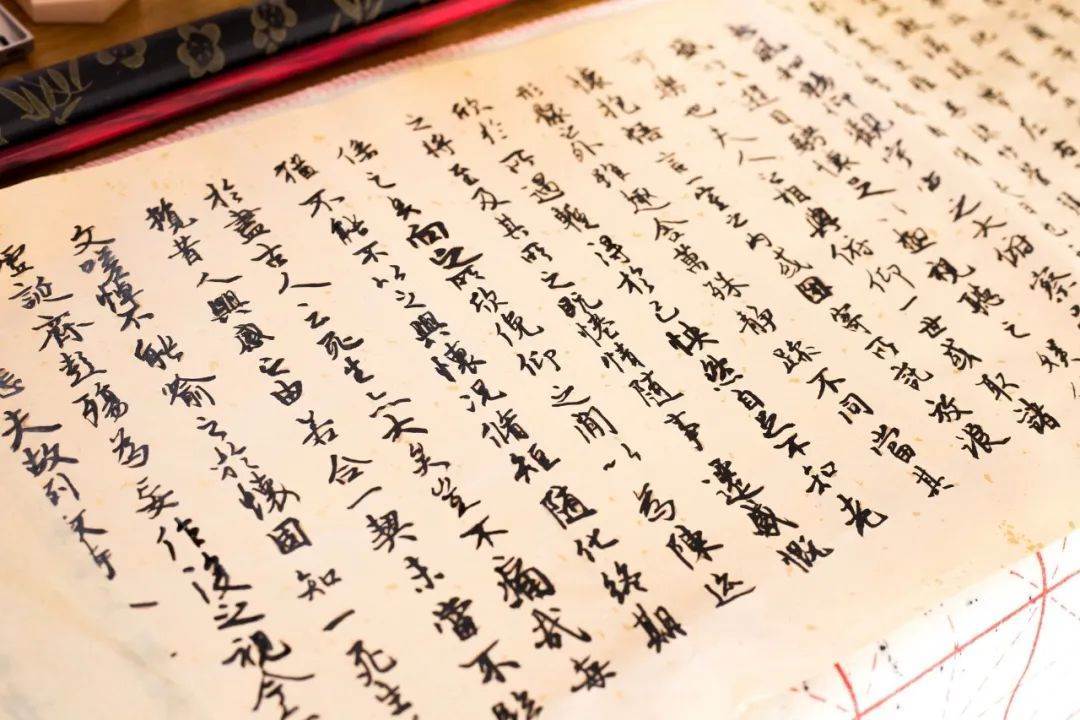 風和暢仰觀宇宙之大俯察
盛所以遊目騁懷足以極視聽之娛
可樂也夫人之相與俯仰一世或取諸
懷抱悟言一室之內或因寄所託放浪
形骸之外雖趣舍萬殊靜躁不同當其
欣於所遇暫得於己快然自足不知老
之將至及其所之既倦情隨事遷感慨
係之矣向之所欣俛仰之間以為陳迹
猶不能不以之興懷況脩短隨化終期
於盡古人云死生亦大矣豈不痛哉每
攬昔人興感之由若合一契未嘗不臨
文嗟悼不能喻之於懷固知一死生
虛誕齊彭殤為妄作後之視今
悲夫故列敘時